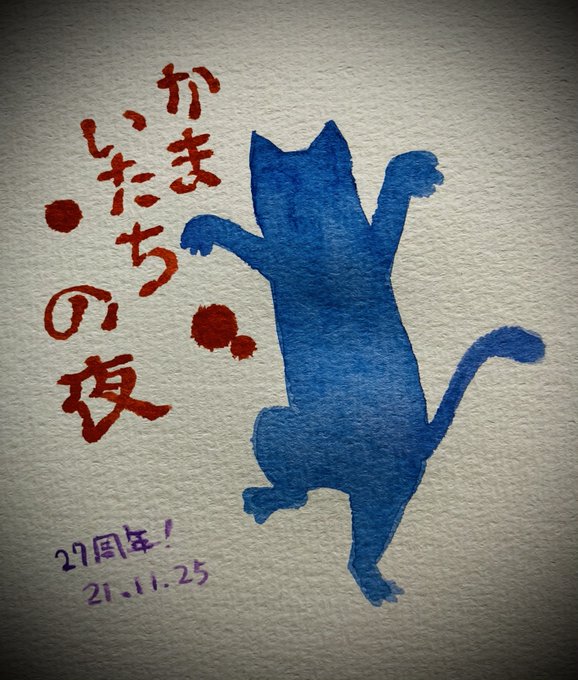 かま
いたち
の夜
27周年!
21.11.25